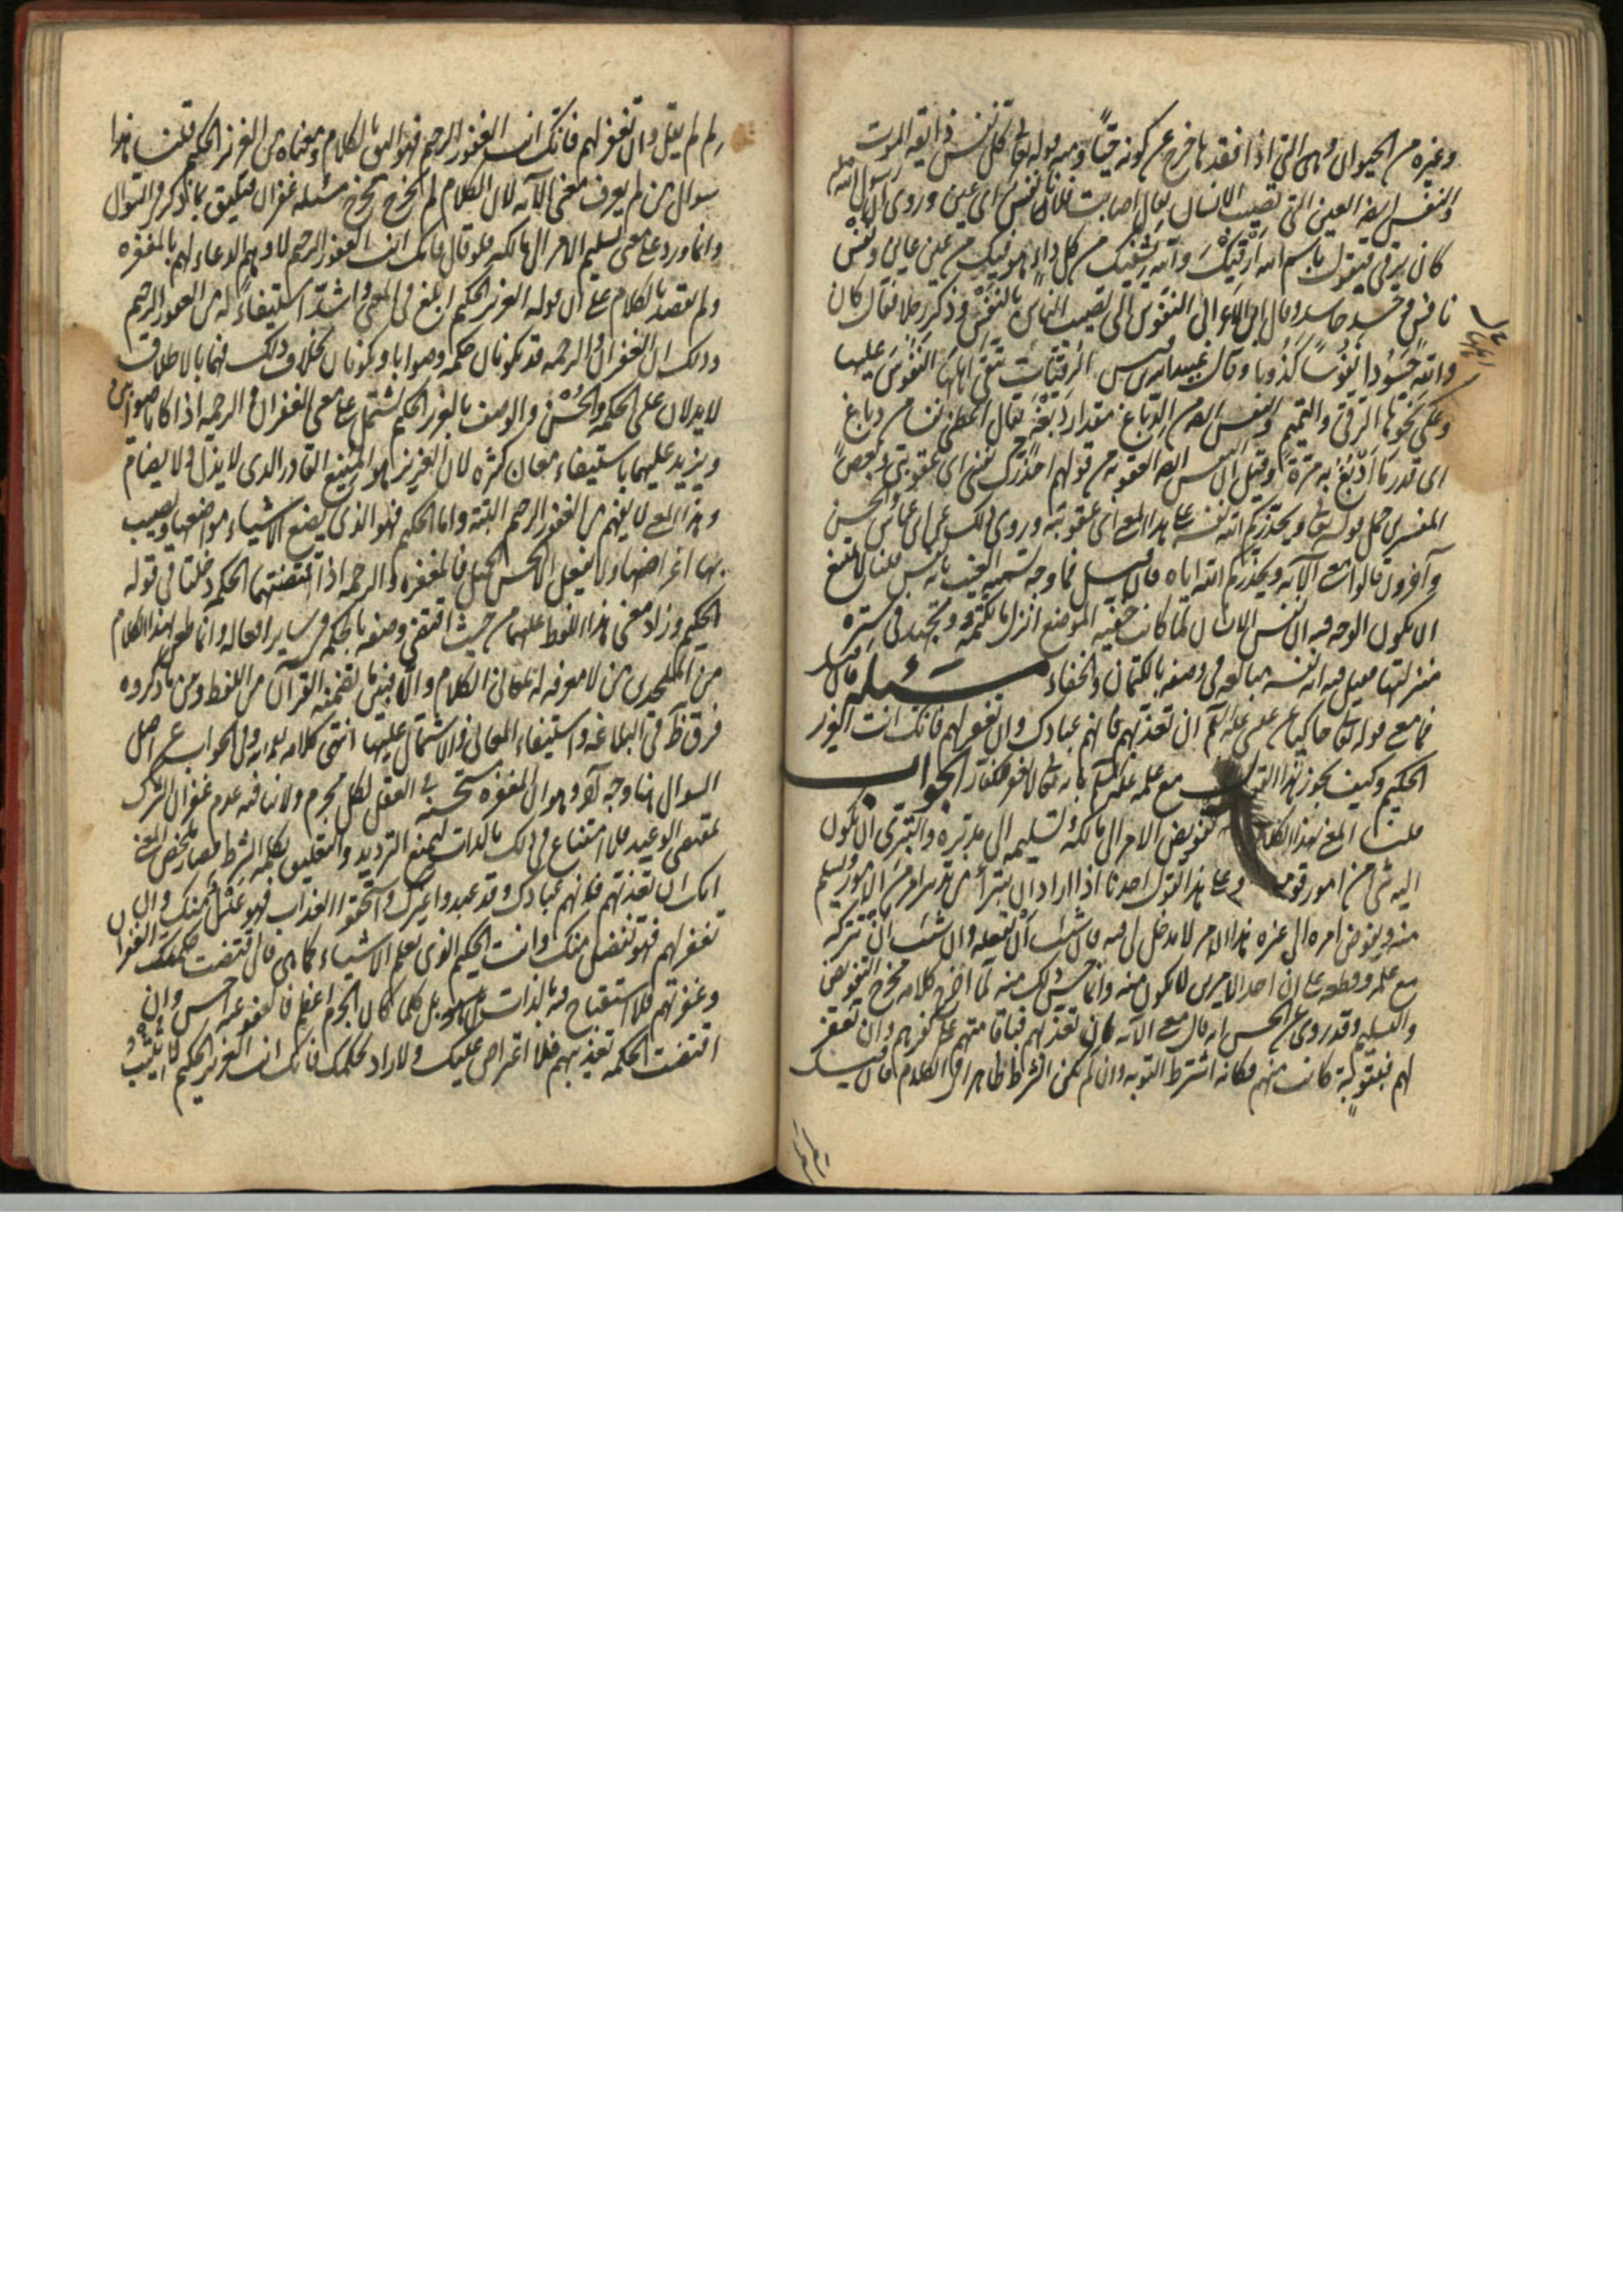 وغيره من الحيوان وهي التي اذا فقدها خرج عن كونه حيا ومنه قوله تعالى كل نفس ذايقة الموت
والنفس ايضا العين التي تصيب الانسان يقال اصابت فلانا نفس اى عين وروى ان رسول الله صلعم
كان يرقى فيقول باسم الله ارقيك والله يشفيك من كل داء هو فيك من عين عاين ونفس
نافس وحسد حاسد وقال ابن الاعرابى النفوس التى تصيب الناس بالنفس وذكر رجلا فقال كان
والله حسودا نفوسا كذوبا وقال عبيد الله بن قيس الرقيات يتقى اهلها النفوس عليها
وعلى نحرها الرقى والتميم والنفس ايضا من الدباغ مقدار دبغة يقال اعطنى نفسا من دباغ
اى قدر ما ادبغ به مرة وقيل ان النفس ايضا العقوبة من قولهم احذرك نفسى اى عقوبتى وبعض
المفسرين حمل قوله تعالى ويحذركم الله نفسه على هذا المعنى اى عقوبته وروى ذلك عن ابن عباس والحسن
وآخرون قالوا معنى الآية ويحذركم الله اياه فان قيل فما وجه تسمية الغيب بانه نفس قلنا لا يمتنع
ان يكون الوجه فيه ان نفس الانسان لما كانت خفية الموضع انزل ما يكتمه ويجتهد فى ستره
منزلتها فقيل فيه انه نفسه مبالغة فى وصفه بالكتمان والخفاء مسئله فان قيل
فما معنى قوله تعالى حاكيا عن عيسى عليه السلم ان تعذبهم فانهم عبادك وان تغفر لهم فانك انت العزيز
الحكيم وكيف يجوز هذا القول مع علمه عليه السلم بانه تعالى لا يغفر للكفار الجواب
قلنا المعنى بهذا الكلام تفويض الامر الى مالكه وتسليمه الى مدبره والتبرى ان يكون
اليه شئ من امور قومه وعلى هذا القول احدنا اذا اراد ان يتبرأ من تدبير امر من الامور ويسلم
منه ويفوض امره الى غيره هذا الامر لا مدخل لى فيه فان شئت ان تفعله وان شئت ان تتركه
مع علمه وقطعه على ان احد الامرين لا يكون منه وانما حسن ذلك منه لما اخرج كلامه مخرج التفويض
والتسليم وقد روى عن الحسن انه قال معنى الآية ان تعذبهم فباقامتهم على كفرهم وان تغفر
لهم فبتوبة كانت منهم فكانه اشترط التوبة وان لم يكن الشرط ظاهرا فى الكلام فان قيل
فلم لم يقل وان تغفر لهم فانك انت الغفور الرحيم فهو اليق بالكلام ومعناه من العزيز الحكيم قلنا هذا
سؤال من لم يعرف معنى الآية لان الكلام لم يخرج مخرج مسئلة غفران فيليق بما ذكر فى السؤال
وانما ورد على معنى تسليم الامر الى مالكه فلو قال فانك انت الغفور الرحيم لاوهم الدعاء لهم بالمغفره
ولم يقصد بالكلام على ان قوله العزيز الحكيم ابلغ فى المعنى واشد استيفاء له من الغفور الرحيم
وذلك ان الغفران والرحمه قد يكونان حكمه وصوابا ويكونان بخلاف ذلك فهما بالاطلاق
لا يدلان على الحكمه والحسن والوصف بالعزيز الحكيم يشتمل على معنى الغفران والرحمه اذا كانا صوابين
ويزيد عليهما باستيفاء معان كثيره لان العزيز هو المنيع القادر الذى لا يذل ولا يضام
وهذا المعنى لا يفهم من الغفور الرحيم البتة واما الحكيم فهو الذى يضع الاشياء مواضعها ويصيب
بها اغراضها ولا يفعل الا الحسن الجميل فالمغفره والرحمه اذا اقتضتهما الحكمة دخلتا فى قوله
الحكيم وزاد معنى هذا اللفظ عليهما من حيث اقتضى وصفه بالحكمه فى ساير افعاله وانما طعن بهذا الكلام
من الملحدين من لا معرفه له بمعانى الكلام والا فبين ما تضمنه القرآن من اللفظ وبين ما ذكروه
فرق ظ فى البلاغه واستيفاء المعانى والاشتمال عليها انتهى كلامه وفى الجواب عن اصل
السوال هنا وجه آخر وهو ان المغفره مستحسنه فى العقل لكل مجرم ولا ينافيه عدم غفران الشرك
لمقتضى الوعيد فلا امتناع فى ذلك بالذات ليمنع الترديد والتعليق بكلمه الشرط فصار ملخص المعنى
انك ان تعذبهم فانهم عبادك وقد عبدوا غيرك واستحقوا العذاب فهو عدل منك وان
تغفر لهم فهو تفضل منك وانت الحكيم الذى تعلم الاشياء كما هى فان اقتضت حكمتك الغفران
وغفرتهم فلا استقباح فيه بالذات بل كلما كان الجرم اعظم فالعفو عنه احسن وان
اقتضت الحكمه تعذيبهم فلا اعتراض عليك ولا راد لحكمك فانك انت العزيز الحكيم